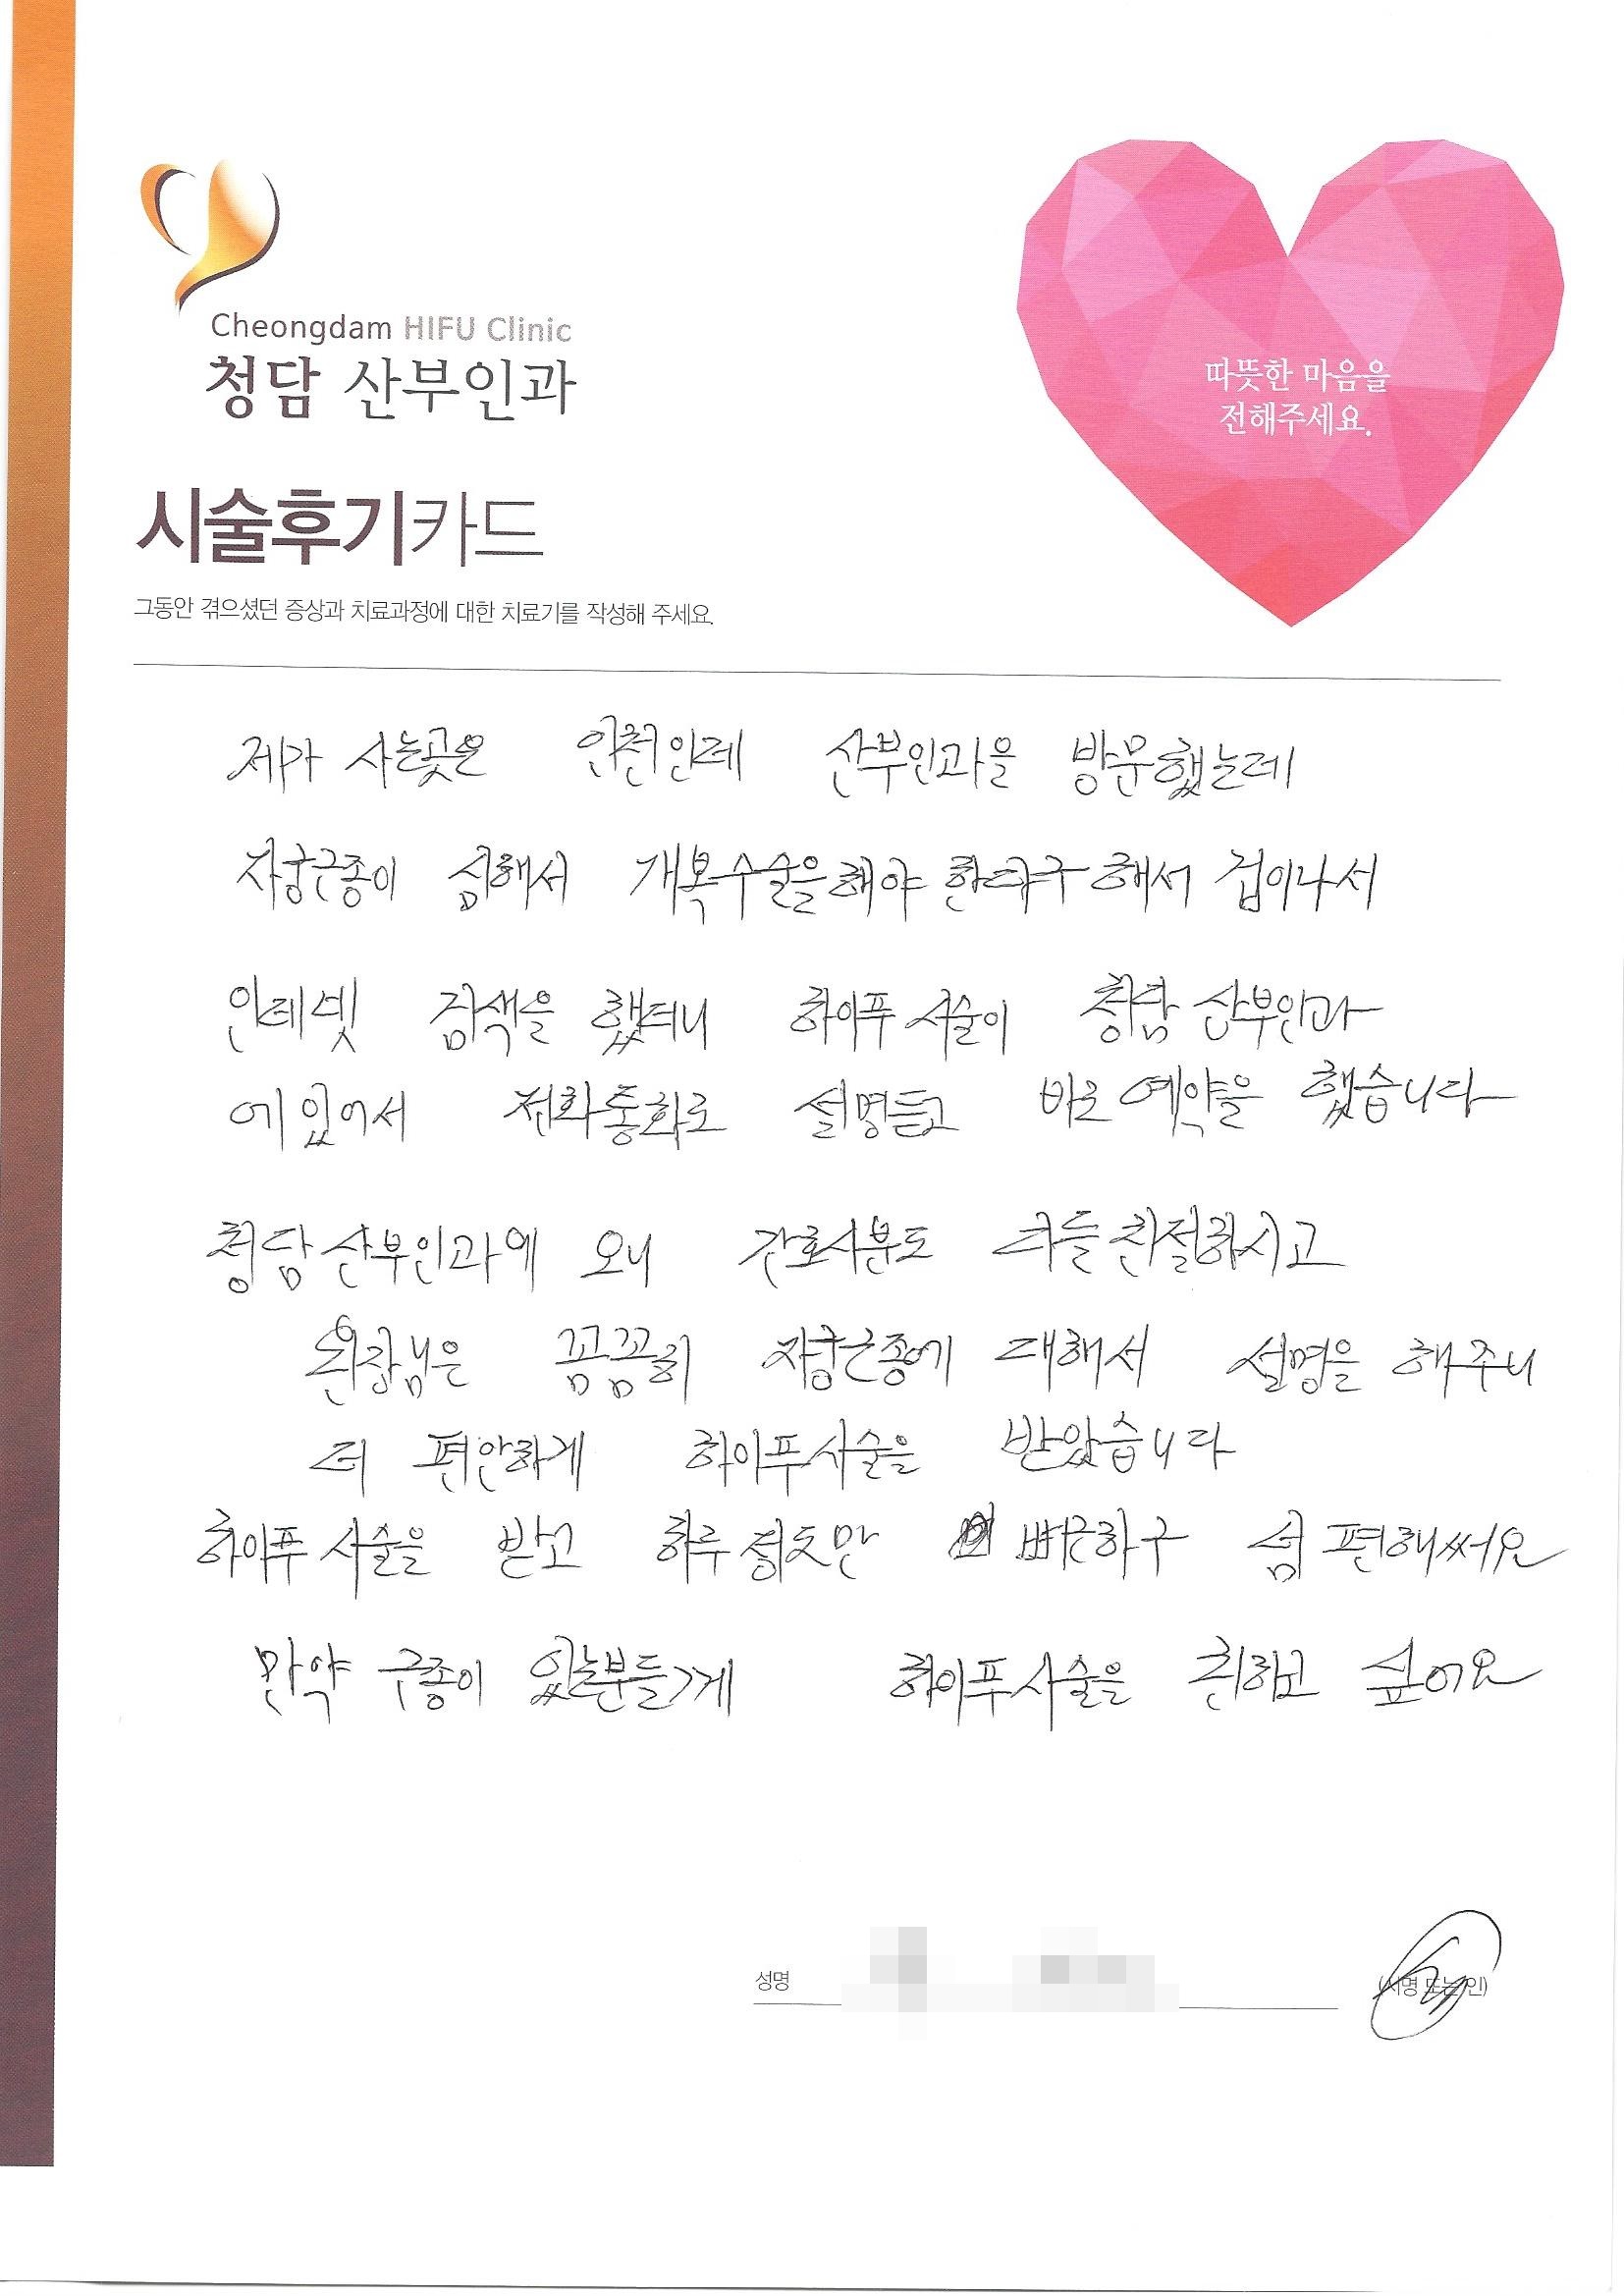 Cheongdam HIFU Clinic
청담 산부인과
따뜻한 마음을
전해주세요.
시술후기카드
그동안 겪으셨던 증상과 치료과정에 대한 치료기를 작성해 주세요.
제가 사는곳은 인천인데 산부인과을 방문했는데
자궁근종이 심해서 개복수술을해야 한다구해서 겁이나서
인테넷 검색을 했더니 하이푸 서술이 청담 산부인과
에 있어서 전화통화로 설명듣고 바로 예약을 했습니다
청담산부인과에 오니 간호사분도 다들친절하시고
원장님은 꼼꼼히 자궁근종에 대해서 설명을 해주니
더 편안하게 하이푸사술을 받았습니다
하이푸 사술을 받고 하루 정도만 뻐근하구 넘 편해써요
만약 근종이 있는분들게 하이푸사술을 권하고 싶어요
성명
(서명 또는 인)